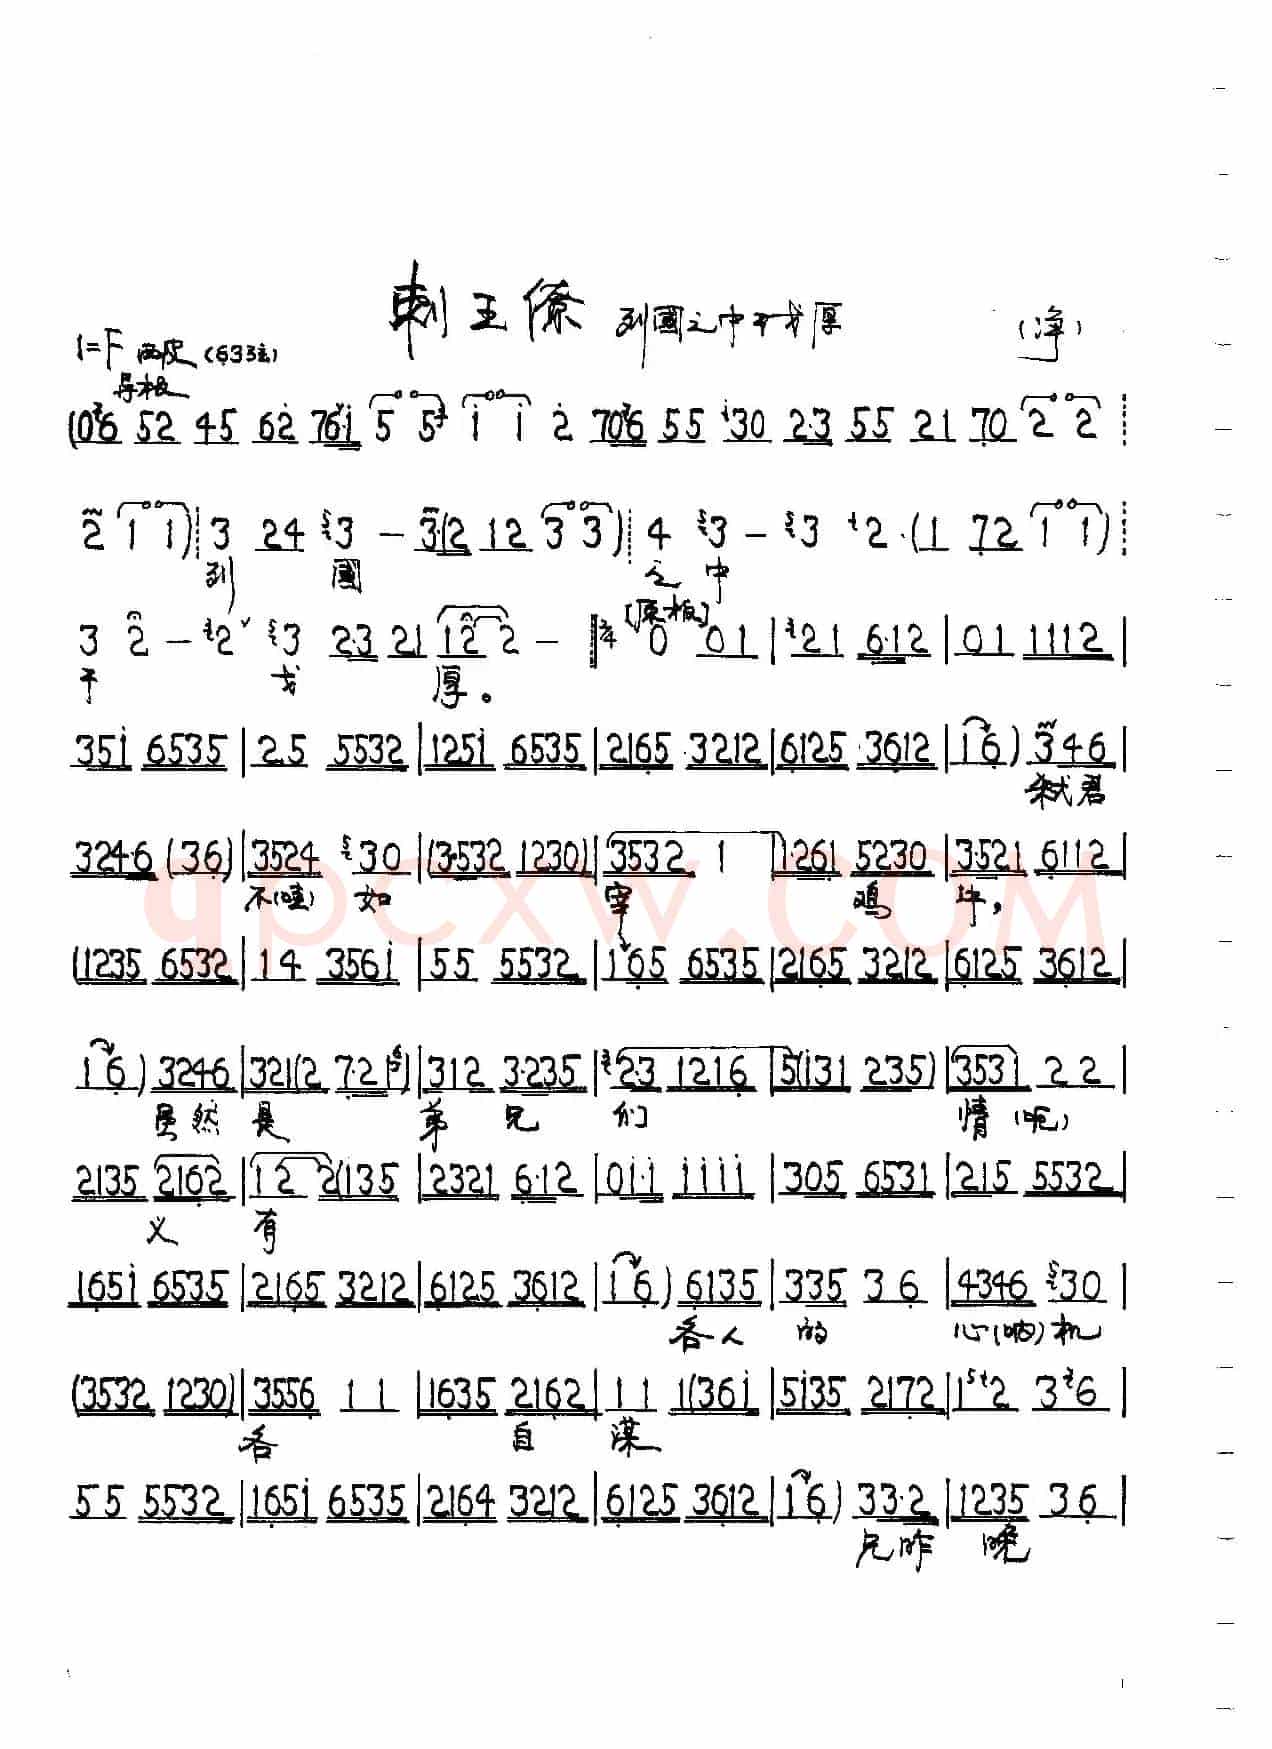 刺王僚 列國之中干戈厚 (净)
1=F 西皮 (633注)
导板
(06 52 45 62 76·i 5 5 i i 2 706 55 i30 2·3 55 21 70 2 2
2 1 1) 3 24 3 - 3·(2 12 3 3) 4 3 - 3 2·(1 72 1 1)
列 國 之 中
[原板]
3 2 - 2 3 2·3 21 12 2 - 2/4 0 01 | 21 6·12 | 01 1112 |
干 戈 厚。
35i 6535 | 2.5 5532 | 125i 6535 | 2165 3212 | 6125 3612 | 1 6) 346 |
弑君
324·6 (36) | 3524 30 | (3·532 1230) | 3532 1 | 1·261 5230 | 3·521 6112 |
不(哇) 如 宰 鸡 牛,
(1235 6532 | 14 356i | 55 5532 | 165 6535 | 2165 3212 | 6125 3612 |
1 6) 3246 | 321(2 7·2 6) | 312 3·235 | 2·3 1216 | 5(i31 235) | 3531 2 2 |
虽然 是 弟 兄 们 情(呃)
2135 2162 | 1 2 2(135 | 2321 6·12 | 0i·i iiii | 305 6531 | 215 5532 |
义 有
165i 6535 | 2165 3212 | 6125 3612 | 1 6) 6135 | 335 3 6 | 4346 30 |
各人 的 心(呐)机
(3532 1230) | 3556 1 1 | 1635 2162 | 1 1 1(36i | 5i35 2172 | 1 2 3 6 |
各 自 谋
55 5532 | 165i 6535 | 2164 3212 | 6125 3612 | 1 6) 33·2 | 1235 3 6 |
兄昨 晚
qpcxw.COM